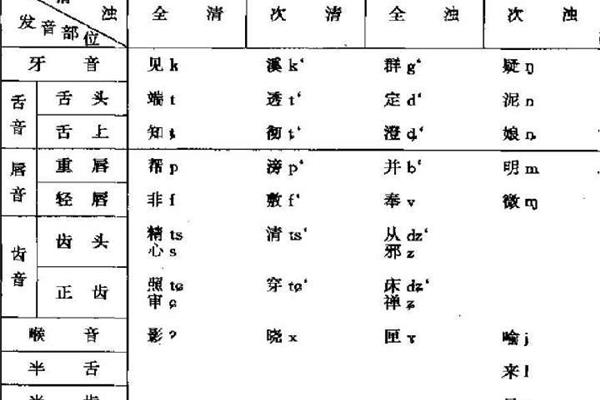 清 浊 全清 次清 全浊 次浊
发音部位
牙音 见 k 溪 k‘ 群 g‘ 疑 ŋ
舌音 舌头 端 t 透 t‘ 定 d‘ 泥 n
舌上 知 ȶ 彻 ȶ‘ 澄 ȡ‘ 娘 ȵ
唇音 重唇 帮 p 滂 p‘ 并 b‘ 明 m
轻唇 非 f 敷 f‘ 奉 v 微 ɱ
齿音 齿头 精 ts 清 ts‘ 从 dz‘
心 s 邪 z
正齿 照 tɕ 穿 tɕ‘ 床 dʑ‘
审 ɕ 禅 ʑ
喉音 影 ʔ 晓 x 匣 ɤ 喻 j
半舌 来 l
半齿